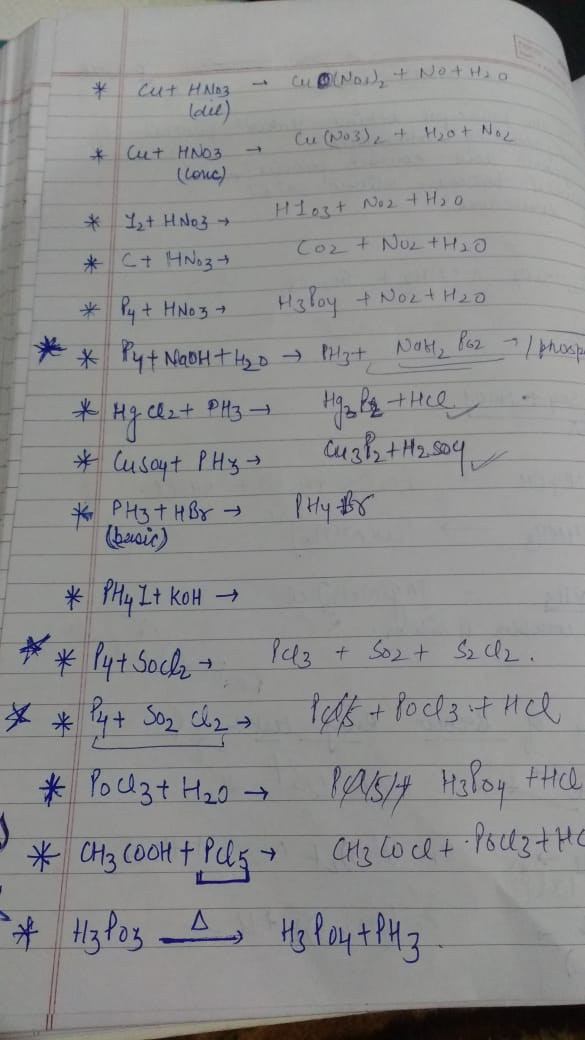 * Cu + HNO3 → Cu (NO3)2 + NO + H2O
(dil)
* Cu + HNO3 → Cu (NO3)2 + H2O + NO2
(conc)
* I2 + HNO3 → HIO3 + NO2 + H2O
* C + HNO3 → CO2 + NO2 + H2O
* P4 + HNO3 → H3PO4 + NO2 + H2O
* * P4 + NaOH + H2O → PH3 + NaH2 PO2 → / phosp
* HgCl2 + PH3 → Hg3P2 + HCl ✓
* CuSO4 + PH3 → Cu3P2 + H2SO4 ✓
* PH3 + HBr → PH4 Br
(basic)
* PH4I + KOH →
* * P4 + SOCl2 → PCl3 + SO2 + S2Cl2.
* * P4 + SO2 Cl2 → + POCl3 + HCl
* POCl3 + H2O → H3PO4 + HCl
* CH3COOH + PCl5 → CH3COCl + POCl3 + HC
* H3PO3 Δ → H3PO4 + PH3.